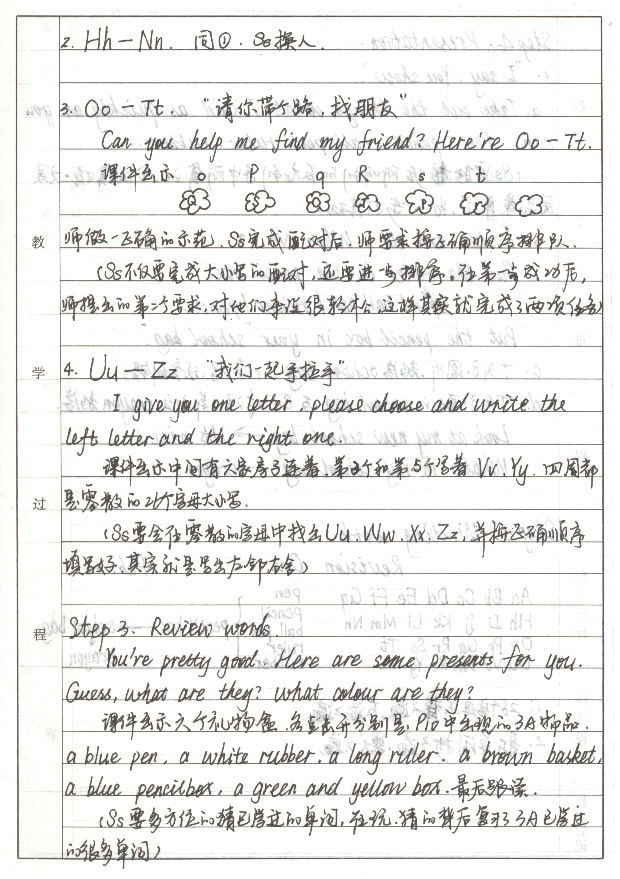 2. Hh — Nn. 同①. Ss换人.
3. Oo — Tt. “请你带个路, 找朋友”
Can you help me find my friend? Here're Oo — Tt.
课件出示 o P q R s t
教
师做一正确的示范, Ss完成配对后, 师要求按正确顺序排队.
(Ss不仅要完成大小写的配对, 还要进一步排序. 在第一步成功后,
师提出的第二个要求, 对他们来说很轻松, 这样其实就完成了两项任务)
学
4. Uu — Zz “我们一起手拉手”
I give you one letter, please choose and write the
left letter and the right one.
课件出示中间有六家房子连着, 第2个和第5个写着 Vv. Yy. 四周都
过
是零散的26个字母大小写.
(Ss要会在零散的字母中找出Uu. Ww. Xx. Zz, 并按正确顺序
填写好, 其实就是写出左邻右舍)
程
Step 3. Review words.
You're pretty good. Here are some presents for you.
Guess, what are they? what colour are they?
课件出示六个礼物盒. 点击开分别是, P10中出现的3A物品.
a blue pen, a white rubber, a long ruler, a brown basket,
a blue pencilbox, a green and yellow box. 最后跟读.
(Ss要多方位的猜已学过的单词, 在玩. 猜的背后复习了3A已学过
的很多单词)